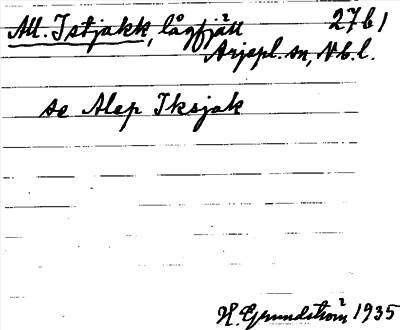 All. Istjakk, lågfjäll 27b1
Arjepl. sn, Vb.l.
se Alep Iksjak
H. Grundström 1935